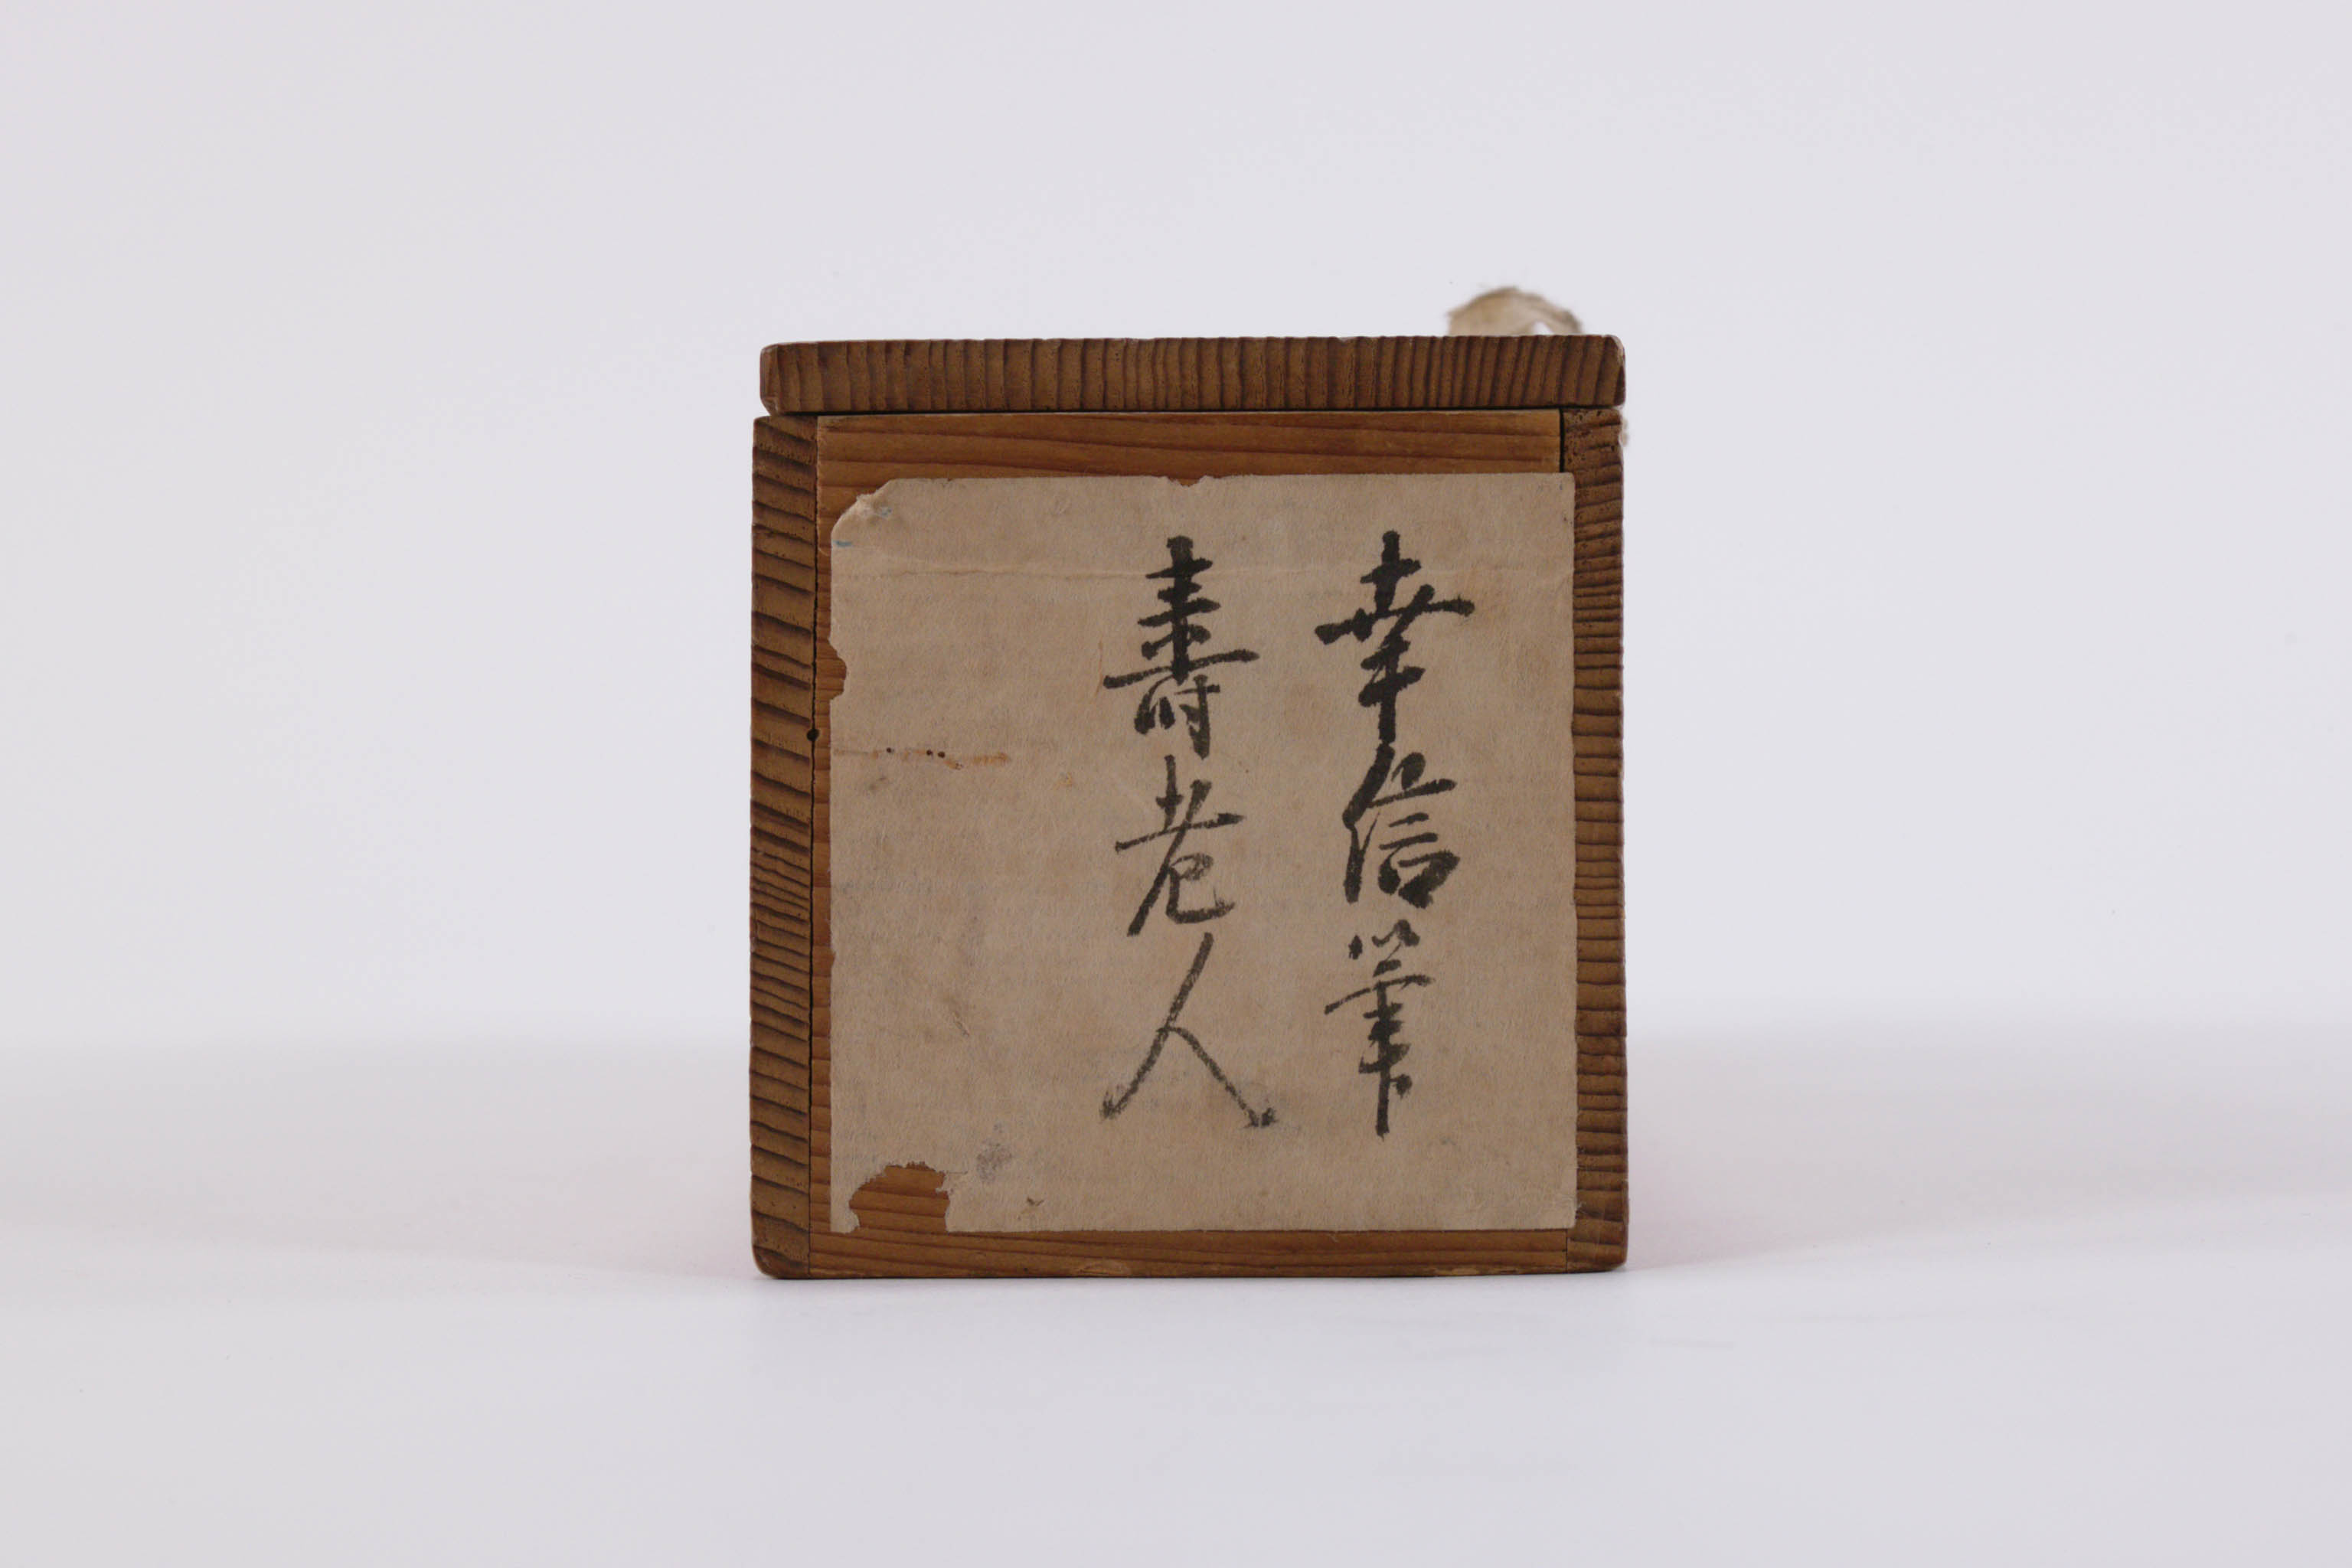 幸信筆
壽老人